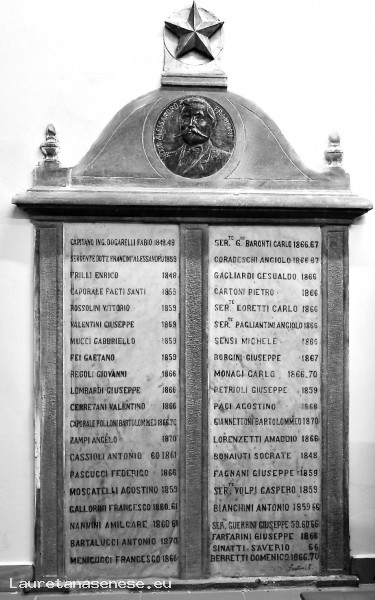 CAPITANO ING. DOGARELLI FABIO 1848.49
SERGENTE DOTT. FRANCINI ALESSANDRO 1859
FRILLI ENRICO 1848
CAPORALE FAETI SANTI 1859
ROSSOLINI VITTORIO 1859
VALENTINI GIUSEPPE 1859
MUCCI GABBRIELLO 1859
FEI GAETANO 1859
REGOLI GIOVANNI 1866
LOMBARDI GIUSEPPE 1866
CERRETANI VALENTINO 1866
CAPORALE POLLONI BARTOLOMMEO 1866.70
ZAMPI ANGELO 1870
CASSIOLI ANTONIO 60 1861
PASCUCCI FEDERIGO 1866
MOSCATELLI AGOSTINO 1859
GALLORINI FRANCESCO 1860.61
NANNINI AMILCARE 1860 61
BARTALUCCI ANTONIO 1870
MENICUCCI FRANCESCO 1866
SER.TE G. BARONTI CARLO 1866.67
CORADESCHI ANGIOLO 1866 67
GAGLIARDI GESUALDO 1866
CARTONI PIETRO 1866
SER.TE LORETTI CARLO 1866
SER.TE PAGLIANTINI ANGIOLO 1866
SENSI MICHELE 1866
BORGINI GIUSEPPE 1867
MONACI CARLO 1866.70
PETRIOLI GIUSEPPE 1859
PACI AGOSTINO 1866
GIANNETTONI BARTOLOMMEO 1870
LORENZETTI AMADDIO 1866
BONAIUTI SOCRATE 1848
FAGNANI GIUSEPPE 1859
SER.TE VOLPI CASPERO 1859
BIANCHINI ANTONIO 1859 66
SER. GUERRINI GIUSEPPE 59.60 66
FARFARINI GIUSEPPE 1866
SINATTI SAVERIO 66
BERRETTI DOMENICO 1866.70
Lauretanasenese.eu